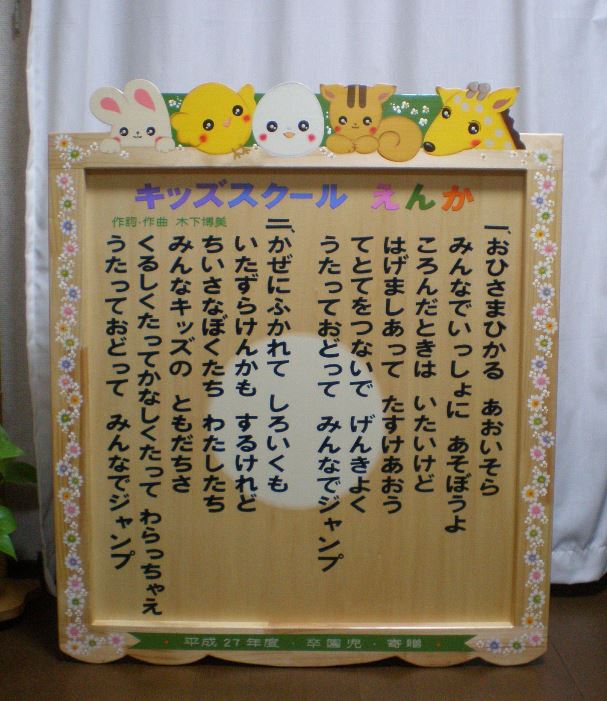 キッズスクール えんか
作詞・作曲 木下博美
一、おひさまひかる あおいそら
みんなでいっしょに あそぼうよ
ころんだときは いたいけど
はげましあって たすけあおう
てとてをつないで げんきよく
うたっておどって みんなでジャンプ
二、かぜにふかれて しろいくも
いたずらけんかも するけれど
ちいさなぼくたち わたしたち
みんなキッズの ともだちさ
くるしくたってかなしくたって わらっちゃえ
うたっておどって みんなでジャンプ
平成27年度・卒園児・寄贈